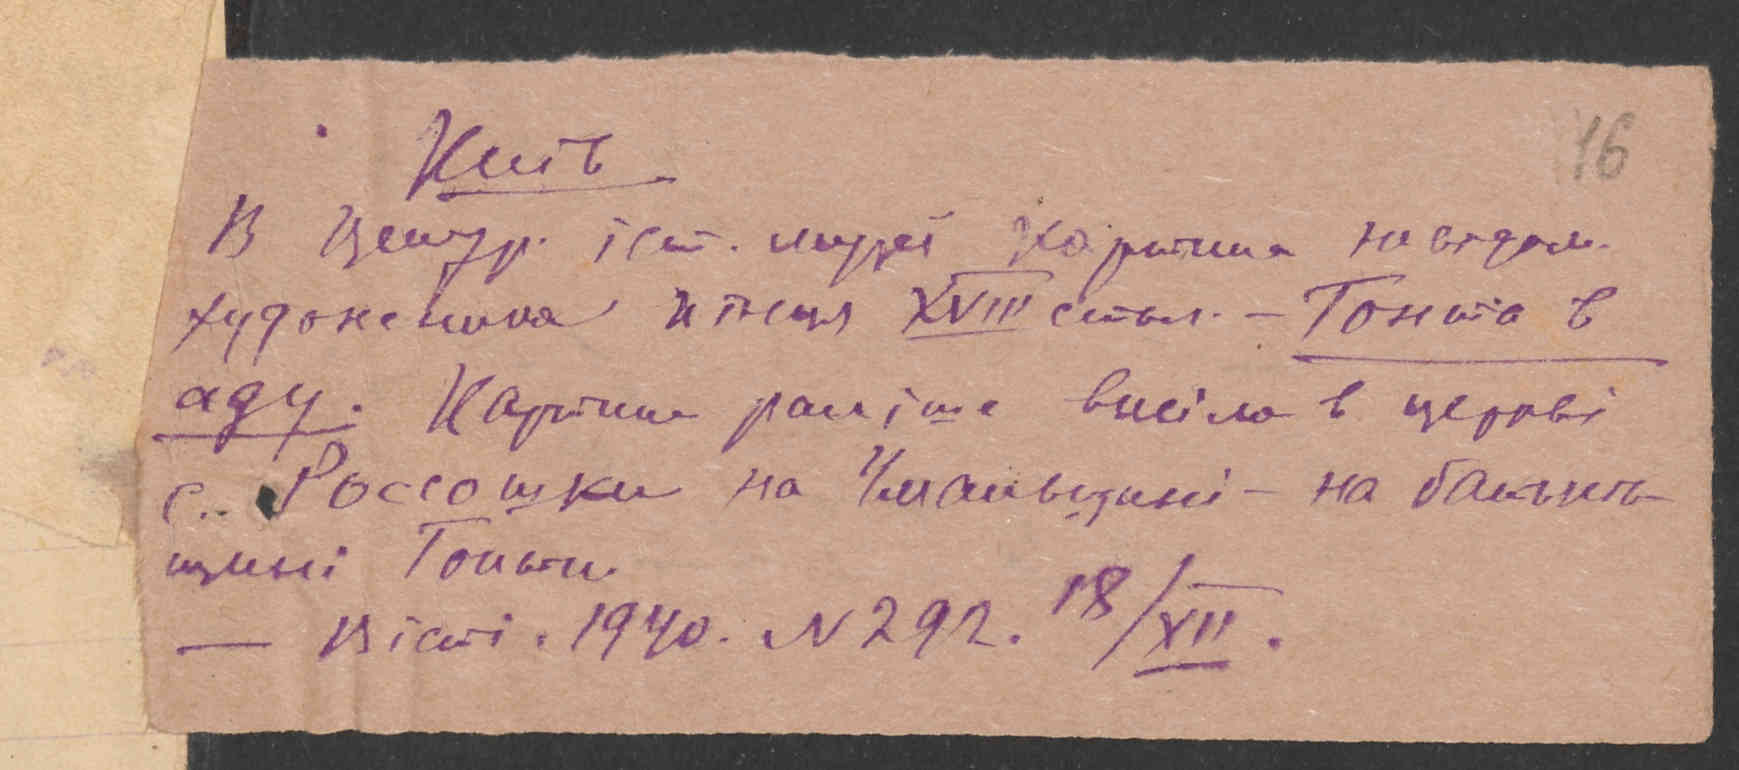 16
Київ
В Центр. іст. музеї картина невідом.
художника кінця XVIII стол. – Гонта в
аду. Картина раніше висіла в церкві
с. Россошки на Уманьщині – на батьків-
щині Гонти.
— Вісті. 1940. N 292. 18/XII.